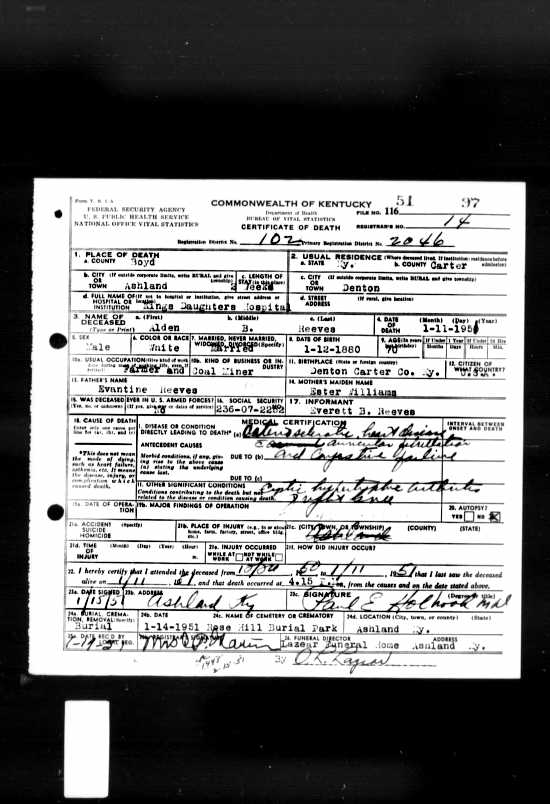 Form V. S. 1 A
FEDERAL SECURITY AGENCY
U. S. PUBLIC HEALTH SERVICE
NATIONAL OFFICE VITAL STATISTICS
COMMONWEALTH OF KENTUCKY
Department of Health
BUREAU OF VITAL STATISTICS
CERTIFICATE OF DEATH
51 97
FILE NO. 116
REGISTRAR'S NO. 14
Registration District No. 102 Primary Registration District No. 2046
1. PLACE OF DEATH
a. COUNTY Boyd
2. USUAL RESIDENCE (Where deceased lived. If institution: residence before admission)
a. STATE Ky. b. COUNTY Carter
b. CITY (If outside corporate limits, write RURAL and give township)
OR TOWN Ashland
c. LENGTH OF STAY (in this place)
Weeks
c. CITY (If outside corporate limits, write RURAL and give township)
OR TOWN Denton
d. FULL NAME OF (If not in hospital or institution, give street address or location)
HOSPITAL OR INSTITUTION Kings Daughters Hospital
d. STREET ADDRESS (If rural, give location)
3. NAME OF DECEASED
(Type or Print)
a. (First) Alden
b. (Middle) B.
c. (Last) Reeves
4. DATE OF DEATH (Month) (Day) (Year)
1-11-1951
5. SEX
Male
6. COLOR OR RACE
White
7. MARRIED, NEVER MARRIED, WIDOWED, DIVORCED (Specify)
Married
8. DATE OF BIRTH
1-12-1880
9. AGE (In years last birthday)
70
If Under 1 Year
If Under 24 Hrs
10a. USUAL OCCUPATION (Give kind of work done during most of working life, even if retired)
Farmer and
10b. KIND OF BUSINESS OR INDUSTRY
Coal Miner
11. BIRTHPLACE (State or foreign country)
Denton Carter Co. Ky.
12. CITIZEN OF WHAT COUNTRY?
U.S.A.
13. FATHER'S NAME
Evantine Reeves
14. MOTHER'S MAIDEN NAME
Ester Williams
15. WAS DECEASED EVER IN U. S. ARMED FORCES?
(Yes, no, or unknown) (If yes, give war or dates of service)
No
16. SOCIAL SECURITY NO.
236-07-2282
17. INFORMANT
Everett B. Reeves
18. CAUSE OF DEATH
Enter only one cause per line for (a), (b), and (c)
MEDICAL CERTIFICATION
INTERVAL BETWEEN ONSET AND DEATH
I. DISEASE OR CONDITION
DIRECTLY LEADING TO DEATH* (a)
ANTECEDENT CAUSES
auricular fibrillation
*This does not mean the mode of dying, such as heart failure, asthenia, etc. It means the disease, injury, or complication which caused death.
Morbid conditions, if any, giving rise to the above cause (a) stating the underlying cause last.
DUE TO (b) and Congestive Failure
DUE TO (c)
II. OTHER SIGNIFICANT CONDITIONS
Conditions contributing to the death but not related to the disease or condition causing death.
hypertrophic arthritis
19a. DATE OF OPERATION
19b. MAJOR FINDINGS OF OPERATION
20. AUTOPSY?
YES NO
21a. ACCIDENT SUICIDE HOMICIDE (Specify)
21b. PLACE OF INJURY (e.g., in or about home, farm, factory, street, office bldg., etc.)
21c. (CITY, TOWN, OR TOWNSHIP) (COUNTY) (STATE)
21d. TIME OF INJURY (Month) (Day) (Year) (Hour) m.
21e. INJURY OCCURRED
WHILE AT WORK NOT WHILE AT WORK
21f. HOW DID INJURY OCCUR?
22. I hereby certify that I attended the deceased from 50 to 1/11 1951 that I last saw the deceased
alive on 1/11 51, and that death occurred at 4.15 m., from the causes and on the date stated above.
23a. DATE SIGNED
1/15/51
23b. ADDRESS
Ashland Ky
23c. SIGNATURE (Degree or title)
Paul E. Holbrook MD
24a. BURIAL, CREMATION, REMOVAL (Specify)
Burial
24b. DATE
1-14-1951
24c. NAME OF CEMETERY OR CREMATORY
Rose Hill Burial Park
24d. LOCATION (City, town, or county) (State)
Ashland Ky.
25a. DATE REC'D BY LOCAL REG.
1-19-51
25b. REGISTRAR'S SIGNATURE
26. FUNERAL DIRECTOR ADDRESS
Lazear Funeral Home Ashland Ky.
By